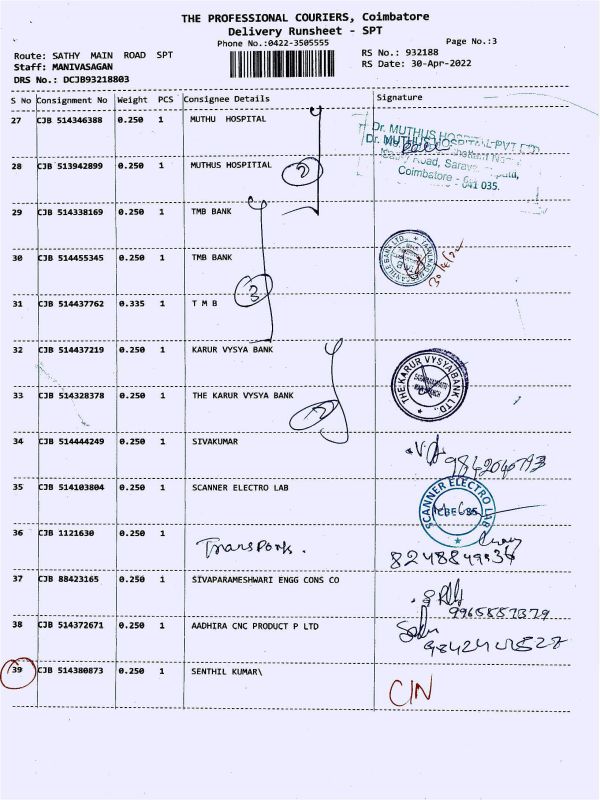 THE PROFESSIONAL COURIERS, Coimbatore
Delivery Runsheet - SPT
Phone No.:0422-3505555
Page No.:3
Route: SATHY MAIN ROAD SPT
RS No.: 932188
Staff: MANIVASAGAN
RS Date: 30-Apr-2022
DRS No.: DCJB93218803
S No Consignment No Weight PCS Consignee Details Signature
27 CJB 514346388 0.250 1 MUTHU HOSPITAL
Dr. MUTHUS HOSPITAL PVT LTD
Coimbatore - 641 035.
28 CJB 513942899 0.250 1 MUTHUS HOSPITIAL 2
29 CJB 514338169 0.250 1 TMB BANK
30 CJB 514455345 0.250 1 TMB BANK
31 CJB 514437762 0.335 1 T M B 3
32 CJB 514437219 0.250 1 KARUR VYSYA BANK
THE KARUR VYSYA BANK LTD.
33 CJB 514328378 0.250 1 THE KARUR VYSYA BANK
34 CJB 514444249 0.250 1 SIVAKUMAR
35 CJB 514103804 0.250 1 SCANNER ELECTRO LAB
SCANNER ELECTRO LAB
36 CJB 1121630 0.250 1 Transport.
37 CJB 88423165 0.250 1 SIVAPARAMESHWARI ENGG CONS CO
38 CJB 514372671 0.250 1 AADHIRA CNC PRODUCT P LTD
39 CJB 514380873 0.250 1 SENTHIL KUMAR\ C/N